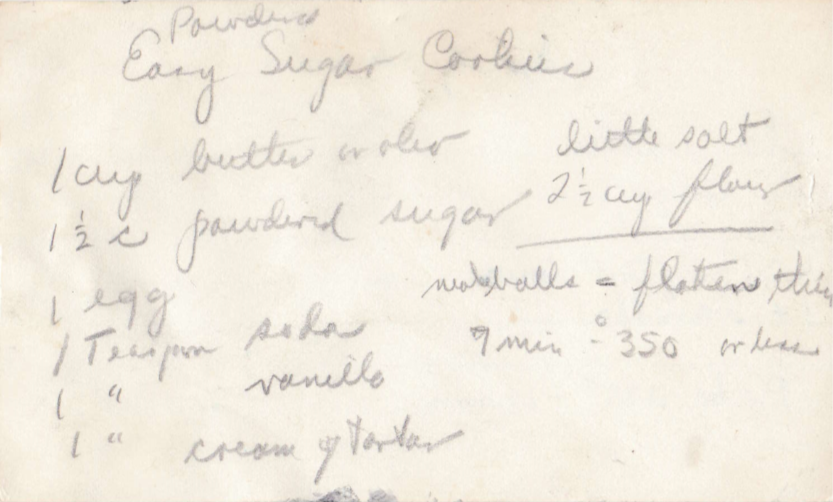 Powdered
Easy Sugar Cookies
1 cup butter or oleo
1 1/2 c powdered sugar
1 egg
1 Teaspoon soda
1 " vanilla
1 " cream of tartar
little salt
2 1/2 cup flour
make balls = flaten thin
9 min - 350 or less